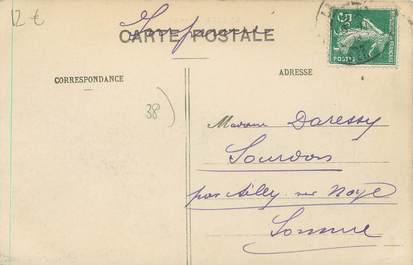 12 €
CARTE POSTALE
CORRESPONDANCE
ADRESSE
38
Madame Daressy
Sourdon
par Ailly sur Noye
Somme